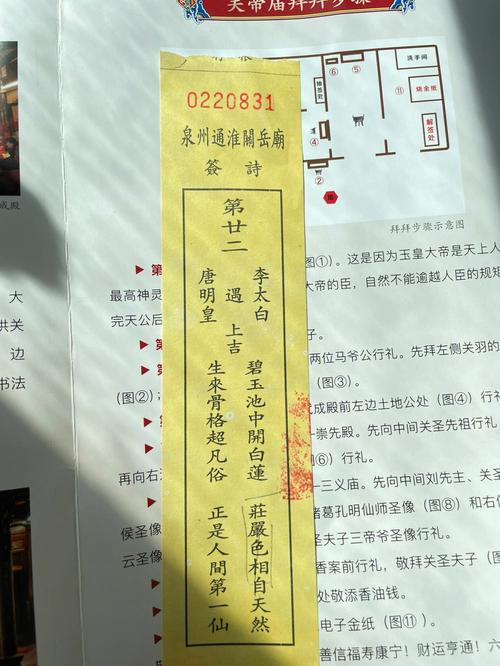 关帝庙拜拜步骤
0220831
泉州通淮關岳廟
簽詩
第廿二
李太白
遇
唐明皇
上吉
碧玉池中開白蓮
莊嚴色相自天然
生來骨格超凡俗
正是人間第一仙
⑥
⑤
洗手间
抽签处
⑪
烧金纸
④
解签处
②
拜拜步骤示意图
成殿
大
洪关
边
书法
图①）。这是因为玉皇大帝是天上人
最高神灵
大帝的臣，自然不能逾越人臣的规矩
完天公后
子。
两位马爷公行礼。先拜左侧关羽的
（图②）；
（图③）。
成殿前左边土地公处（图④）行礼
崇先殿。先向中间关圣先祖行礼
⑥）行礼。
再向右
三义庙。先向中间刘先主、关圣
诸葛孔明仙师圣像（图⑧）和右
侯圣像
夫子三帝爷圣像行礼。
云圣像
香案前行礼，敬拜关圣夫子（
处敬添香油钱。
电子金纸（图⑪）。
善信福寿康宁！财运亨通！六